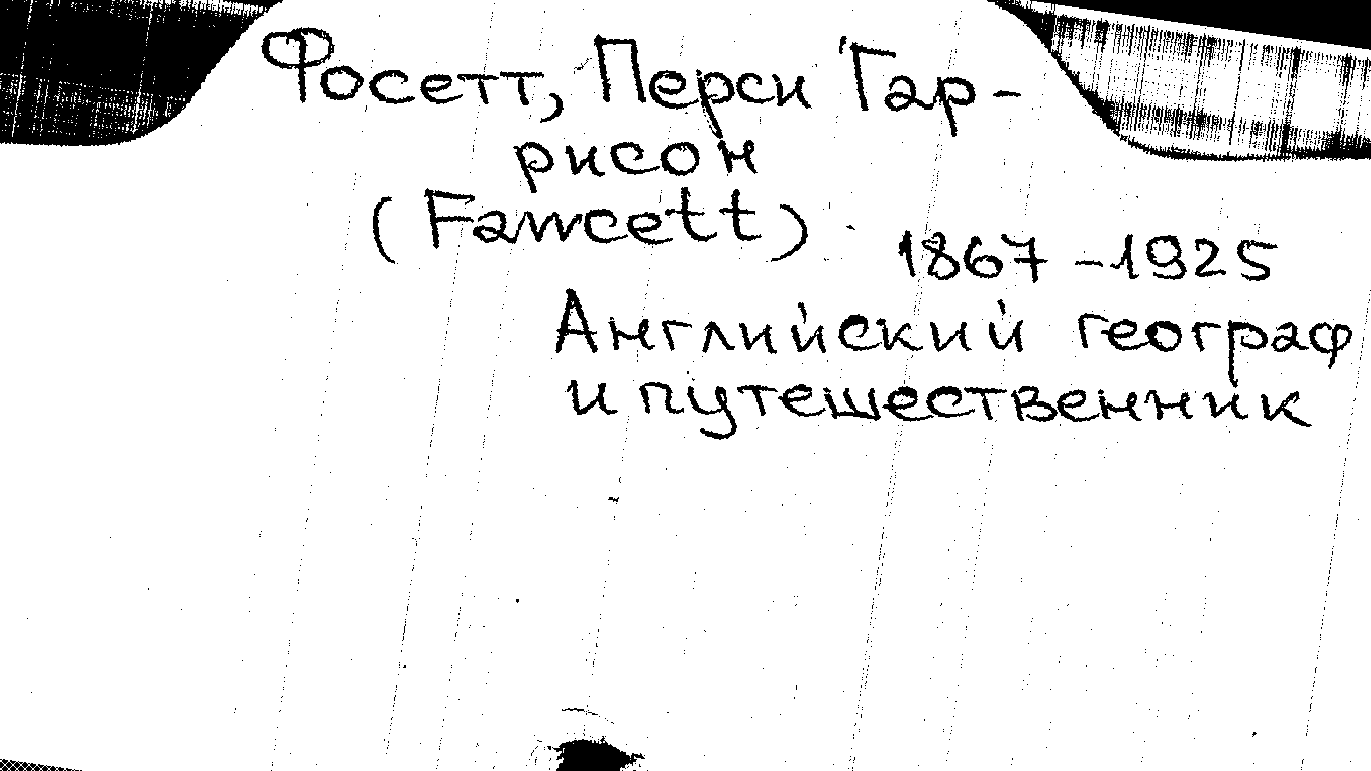 Фосетт, Перси Гар-
рисон
(Fawcett)
1867-1925
Английский географ
и путешественник